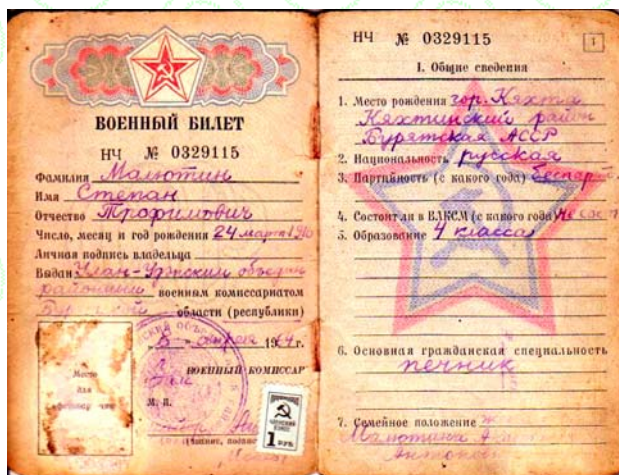 ВОЕННЫЙ БИЛЕТ
НЧ № 0329115
Фамилия Малютин
Имя Степан
Отчество Трофимович
Число, месяц и год рождения 24 марта
Личная подпись владельца
Выдан Улан-Удэнским
районным военным комиссариатом
области (республики)
196 г.
ВОЕННЫЙ КОМИССАР
Место
для
М. П.
1 РУБ
НЧ № 0329115
1
I. Общие сведения
1. Место рождения гор. Кяхта
Кяхтинский район
Бурятская АССР
2. Национальность русская
3. Партийность (с какого года)
4. Состоит ли в ВЛКСМ (с какого года)
5. Образование 4 класса
6. Основная гражданская специальность
печник
7. Семейное положение
Малютина